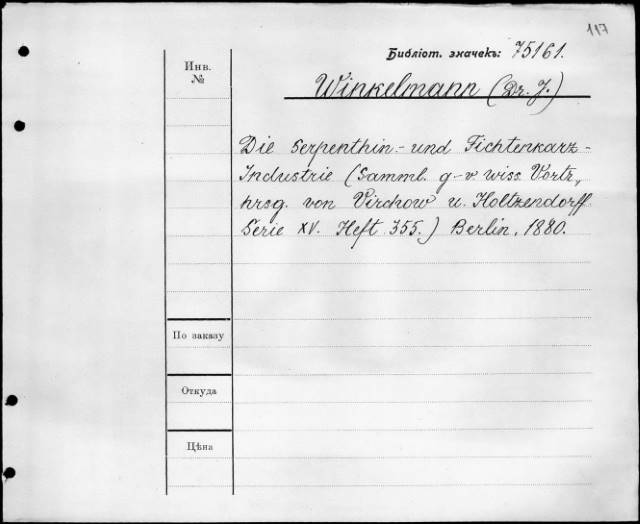 117
Библіот. значекъ: 75161.
Инв. №
Winkelmann (Dr. J.)
Die Serpenthin- und Fichtenharz-
Industrie (Samml. g-v wiss. Vortr,
hrsg. von Virchow u. Holtzendorff
Serie XV. Heft 355.) Berlin, 1880.
По заказу
Откуда
Цѣна